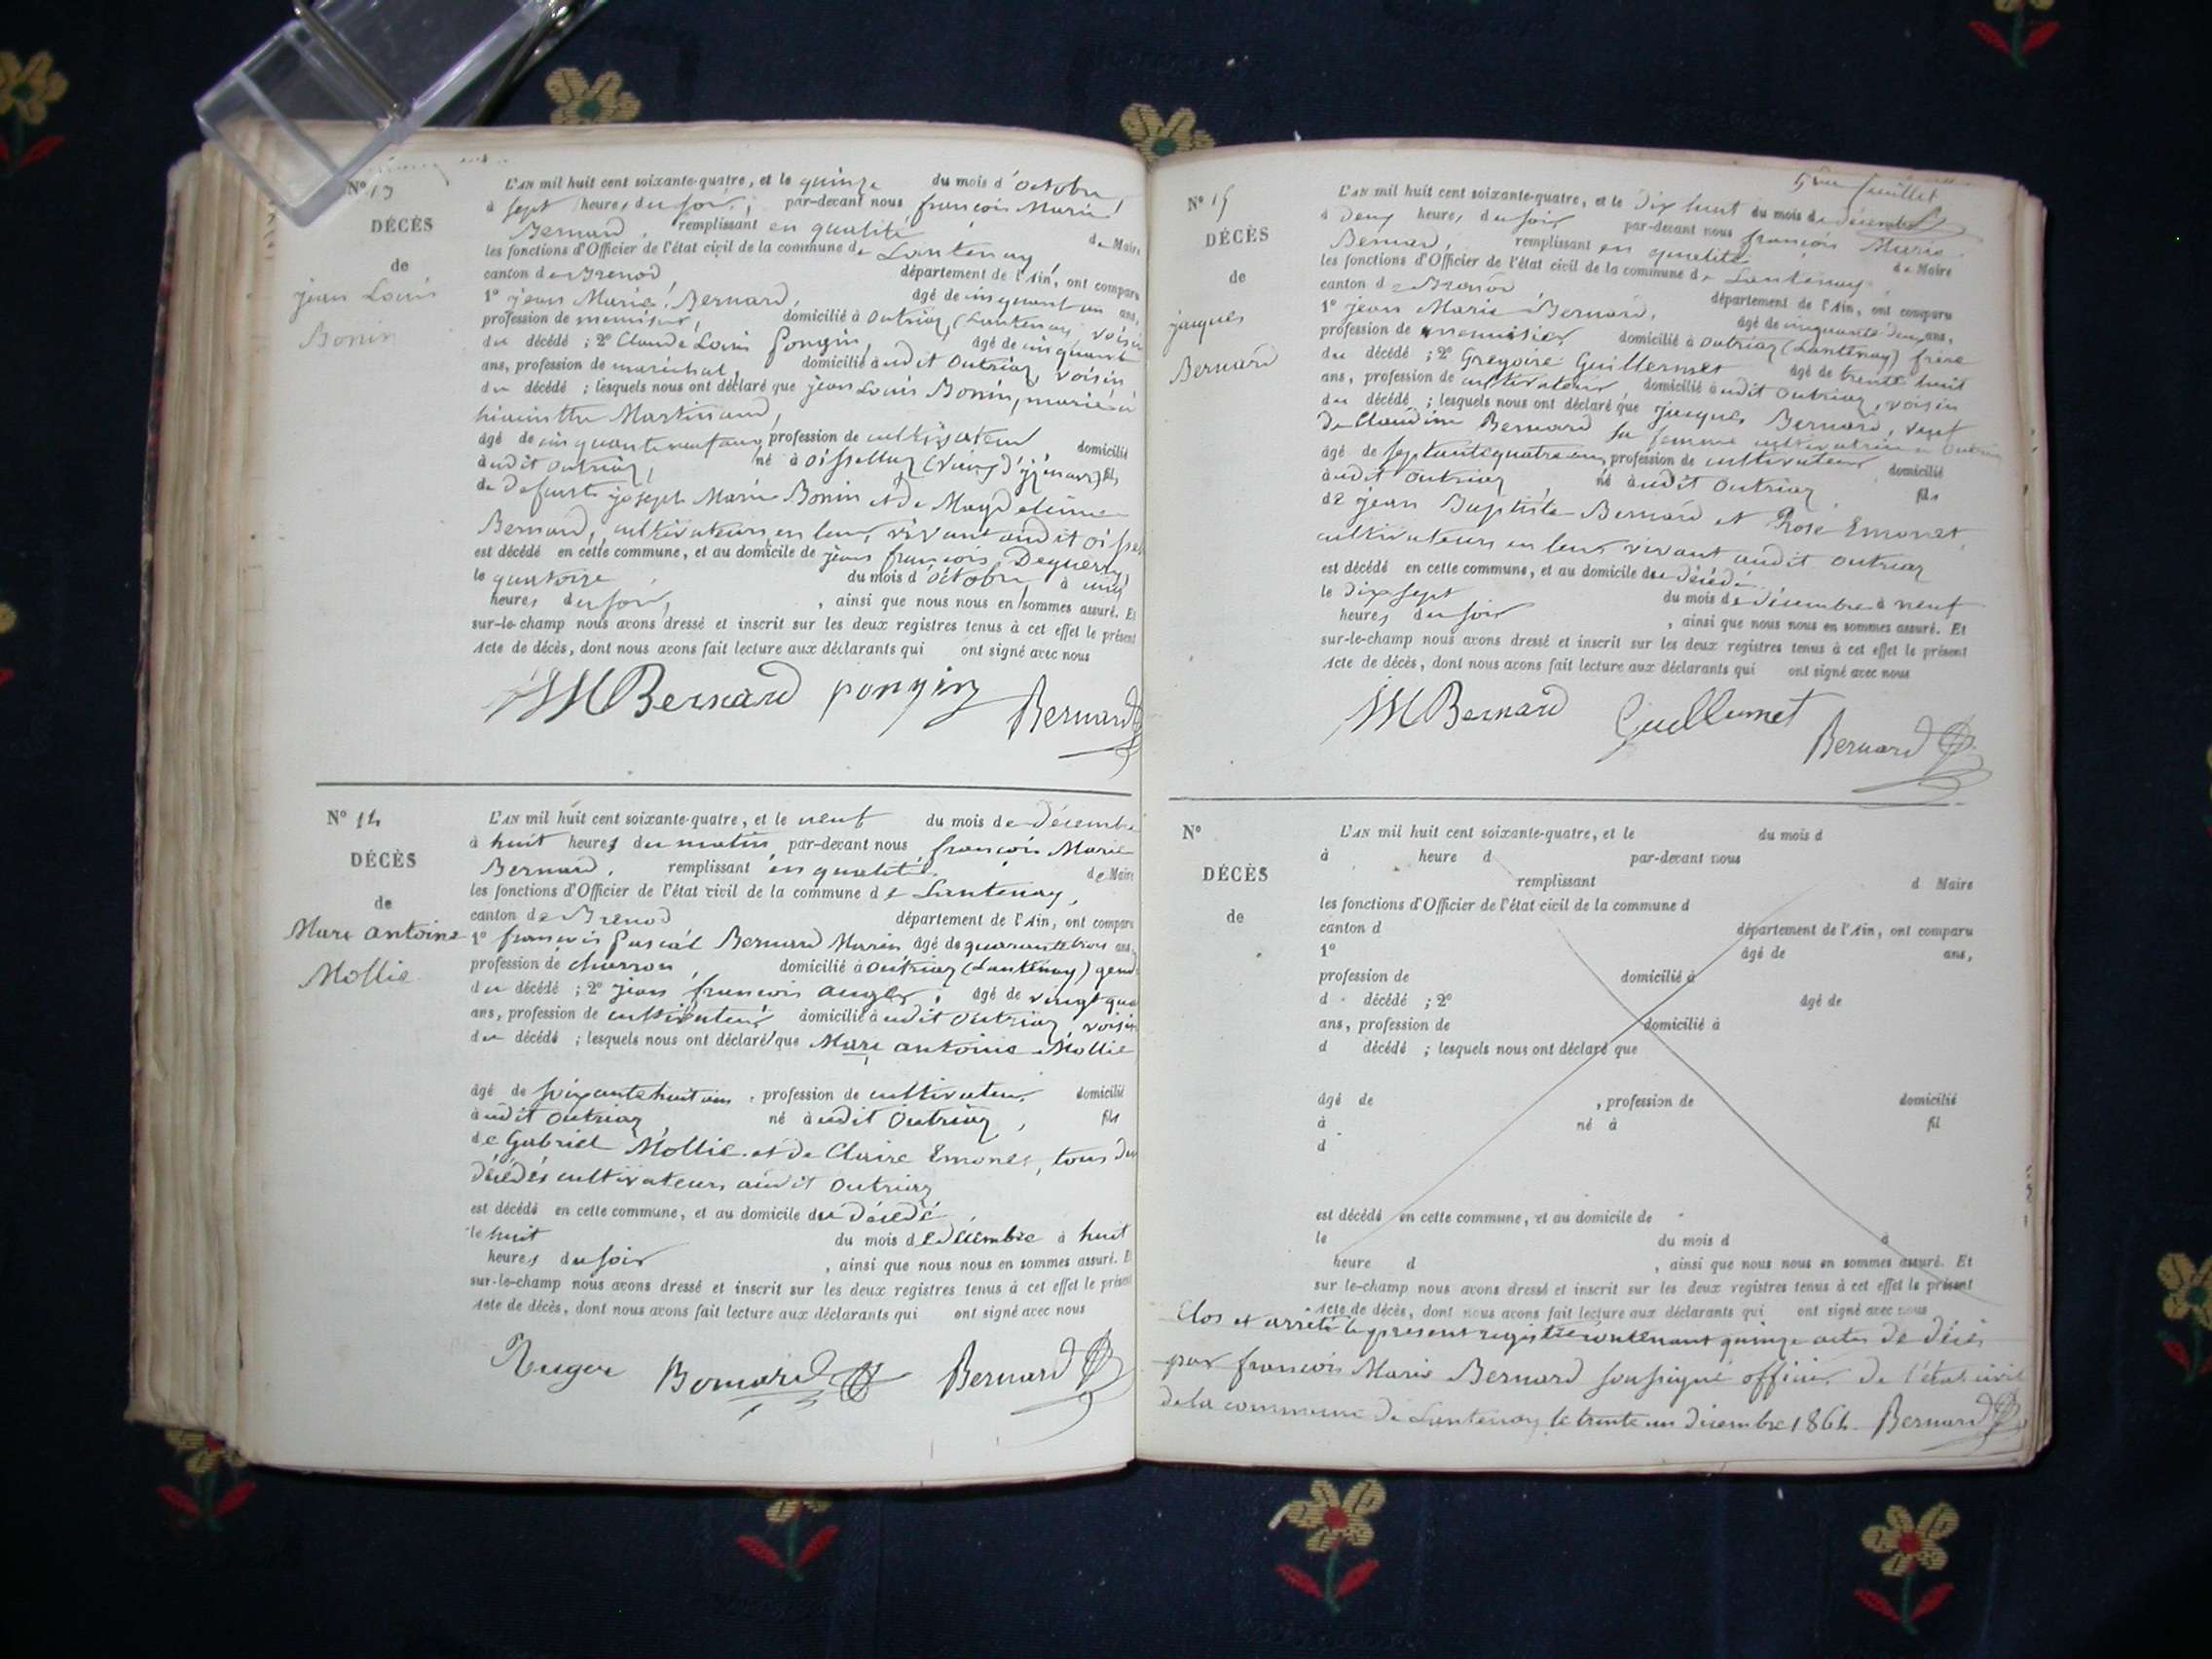 N° 13
DÉCÈS
de
jean Louis
Bonin
L'AN mil huit cent soixante-quatre, et le quinze du mois d'octobre
à sept heures du soir, par-devant nous françois Marie
Bernard, remplissant en qualité de Maire
les fonctions d'Officier de l'état civil de la commune de Lantenay,
canton de Brenod département de l'Ain, ont comparu
1° jean Marie Bernard, âgé de cinquant un ans,
profession de menuisier, domicilié à outriaz, (Lantenay) voisin
du décédé ; 2° Claude Louis Pongin, âgé de cinquante
ans, profession de maréchal, domicilié à udit Outriaz, voisin
du décédé ; lesquels nous ont déclaré que jean Louis Bonin, marié à
hiacinthe Martinand,
âgé de cinquante neuf ans, profession de cultivateur domicilié
à udit outriaz, né à oisselaz (Vieux d'yzenave) fils
de defunts joseph Marie Bonin et de Magdeleine
Bernard, cultivateurs en leur vivant audit oissel
est décédé en cette commune, et au domicile de jean françois Deguerry
le quatorze du mois d'octobre, à cinq
heures du soir, , ainsi que nous nous en sommes assuré. Et
sur-le-champ nous avons dressé et inscrit sur les deux registres tenus à cet effet le présent
Acte de décès, dont nous avons fait lecture aux déclarants qui ont signé avec nous
JM Bernard pongin Bernard
N° 14
DÉCÈS
de
Marc antoine
Mollie
L'AN mil huit cent soixante-quatre, et le neuf du mois de décembre
à huit heures du matin par-devant nous françois Marie
Bernard, remplissant en qualité de Maire
les fonctions d'Officier de l'état civil de la commune de Lantenay,
canton de Brenod département de l'Ain, ont comparu
1° françois Pascal Bernard Marin âgé de quarante trois ans,
profession de charron, domicilié à outriaz (Lantenay) gend
du décédé ; 2° jean françois auger, âgé de vingt qua
ans, profession de cultivateur domicilié à udit Outriaz, voisin
du décédé ; lesquels nous ont déclaré que Marc antoine Mollie
âgé de soixante huit ans, profession de cultivateur domicilié
à udit outriaz, né à udit Outriaz, fils
de Gabriel Mollie et de Claire Emonet, tous deu
décédés cultivateurs audit outriaz
est décédé en cette commune, et au domicile du décédé
le huit du mois de décembre à huit
heures du soir , ainsi que nous nous en sommes assuré. Et
sur-le-champ nous avons dressé et inscrit sur les deux registres tenus à cet effet le présent
Acte de décès, dont nous avons fait lecture aux déclarants qui ont signé avec nous
Bernard Bernard
5me feuillet
N° 15
DÉCÈS
de
jacques
Bernard
L'AN mil huit cent soixante-quatre, et le dix huit du mois de décembre
à deux heures du soir par-devant nous françois Marie
Bernard, remplissant en qualité de Maire
les fonctions d'Officier de l'état civil de la commune de Lantenay
canton de Brenod département de l'Ain, ont comparu
1° jean Marie Bernard, âgé de cinquante deux ans,
profession de menuisier domicilié à outriaz (Lantenay) frère
du décédé ; 2° Gregoire Guillermet âgé de trente huit
ans, profession de cultivateur domicilié à udit outriaz, voisin
du décédé ; lesquels nous ont déclaré que jacques Bernard, veuf
de Claudine Bernard sa femme cultivatrice
âgé de septante quatre ans, profession de cultivateur domicilié
à udit outriaz, né à udit outriaz fils
de jean Baptiste Bernard et Rose Emonet
cultivateurs en leur vivant audit outriaz
est décédé en cette commune, et au domicile du décédé
le dix sept du mois de décembre à neuf
heures du soir , ainsi que nous nous en sommes assuré. Et
sur-le-champ nous avons dressé et inscrit sur les deux registres tenus à cet effet le présent
Acte de décès, dont nous avons fait lecture aux déclarants qui ont signé avec nous
JM Bernard Guillermet Bernard
N°
DÉCÈS
de
L'AN mil huit cent soixante-quatre, et le du mois d
à heure d par-devant nous
remplissant d Maire
les fonctions d'Officier de l'état civil de la commune d
canton d département de l'Ain, ont comparu
1° âgé de ans,
profession de domicilié à
d décédé ; 2° âgé de
ans, profession de domicilié à
d décédé ; lesquels nous ont déclaré que
âgé de , profession de domicilié
à né à fil
d
est décédé en cette commune, et au domicile de
le du mois d à
heure d , ainsi que nous nous en sommes assuré. Et
sur-le-champ nous avons dressé et inscrit sur les deux registres tenus à cet effet le présent
Acte de décès, dont nous avons fait lecture aux déclarants qui ont signé avec nous
Clos et arrêté le présent registre contenant quinze actes de décès
par françois Marie Bernard soussigné officier de l'état civil
de la commune de Lantenay, le trente un décembre 1864. Bernard